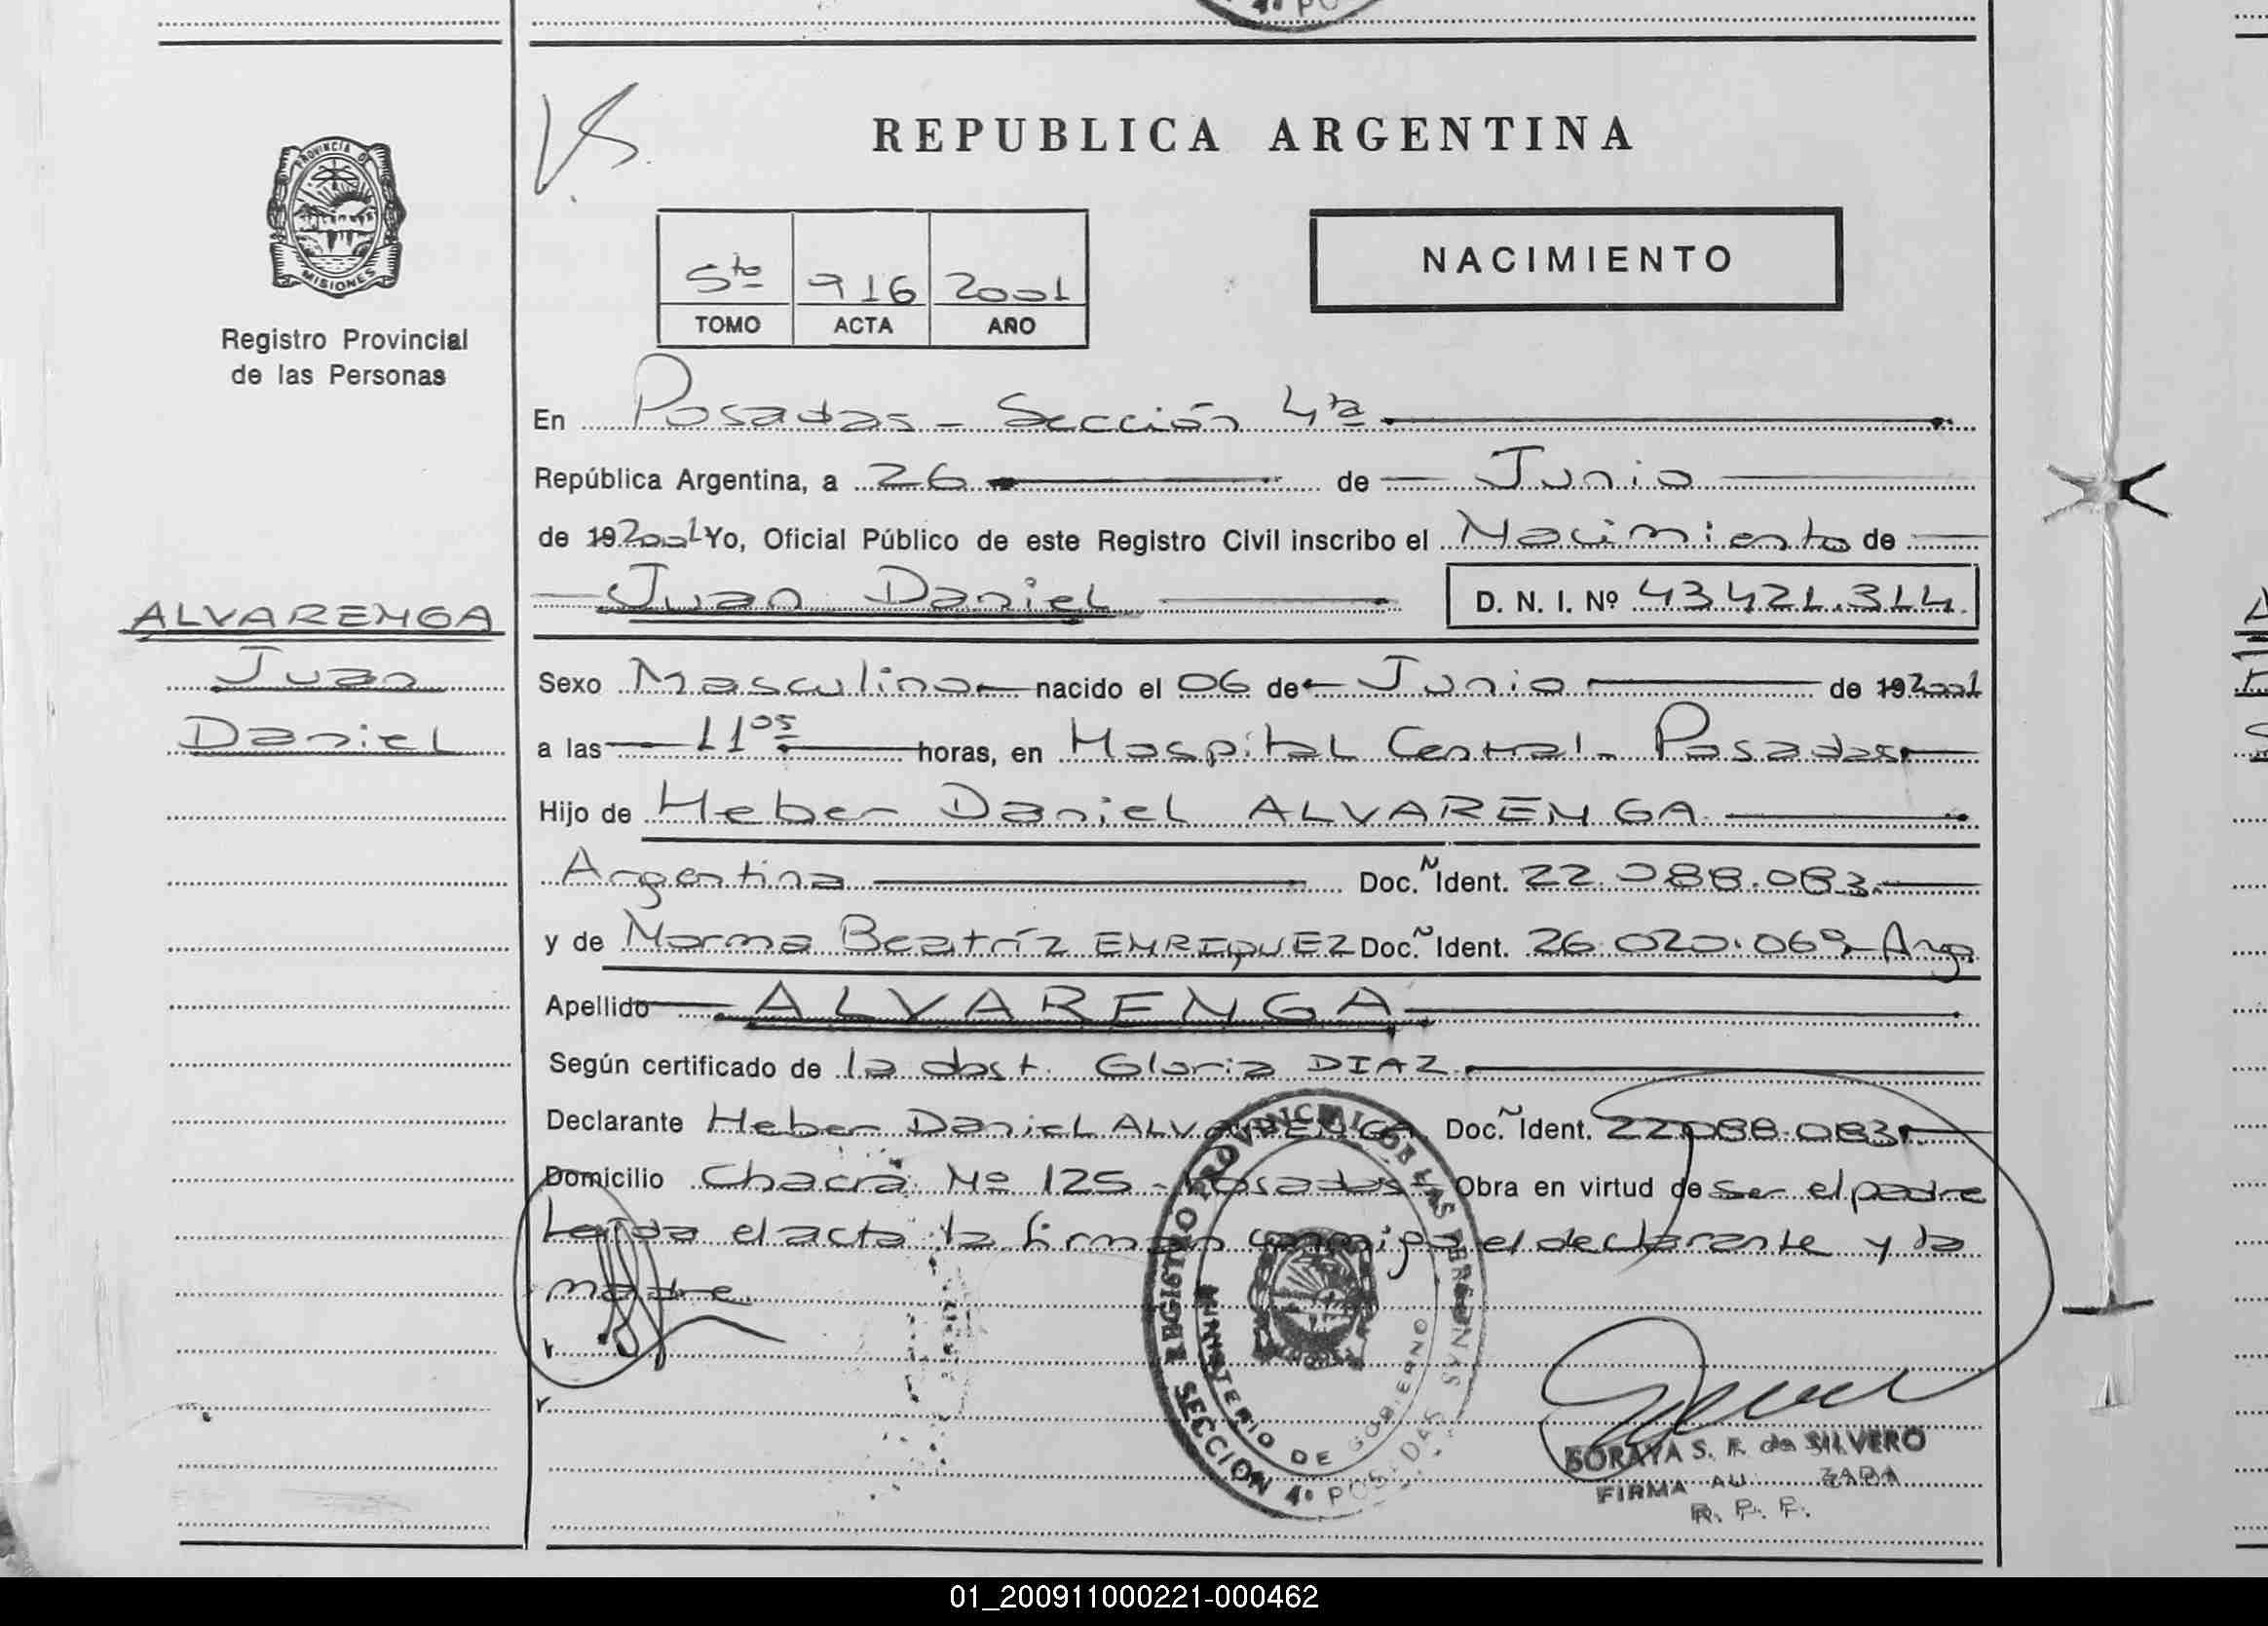 REPUBLICA ARGENTINA
PROVINCIA DE
MISIONES
Registro Provincial
de las Personas
5to 916 2001
TOMO ACTA AÑO
NACIMIENTO
En Posadas - Sección 4ta
República Argentina, a 26 de Junio
de 192001 Yo, Oficial Público de este Registro Civil inscribo el Nacimiento de
Juan Daniel D. N. I. Nº 43421.314
ALVARENGA
Juan
Daniel
Sexo Masculino nacido el 06 de Junio de 192001
a las 11 05 horas, en Hospital Central - Posadas
Hijo de Heber Daniel ALVARENGA
Argentina Doc. Ident. 22.088.083
y de Norma Beatríz ENRIQUEZ Doc. Ident. 26.020.069 - Arg.
Apellido ALVARENGA
Según certificado de la obst. Gloria DIAZ
Declarante Heber Daniel ALVARENGA Doc. Ident. 22088.083
Domicilio Chacra Nº 125 - Posadas - Obra en virtud de ser el padre
Leída el acta la firman conmigo el declarante y la
madre.
REGISTRO PROVINCIAL DE LAS PERSONAS
MINISTERIO DE GOBIERNO
SECCION 4ª POSADAS
SORAYA S. F. de SILVERO
FIRMA
R. P. P.
01_200911000221-000462